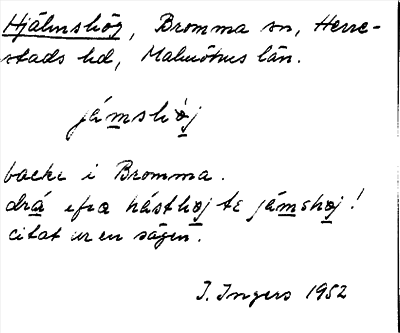 Hjälmshög, Bromma sn, Herre-
stads hd, Malmöhus län.
jámshøj
backe i Bromma.
drá ifra hásthøj te jámshøj!
citat ur en sägen.
I. Ingers 1952